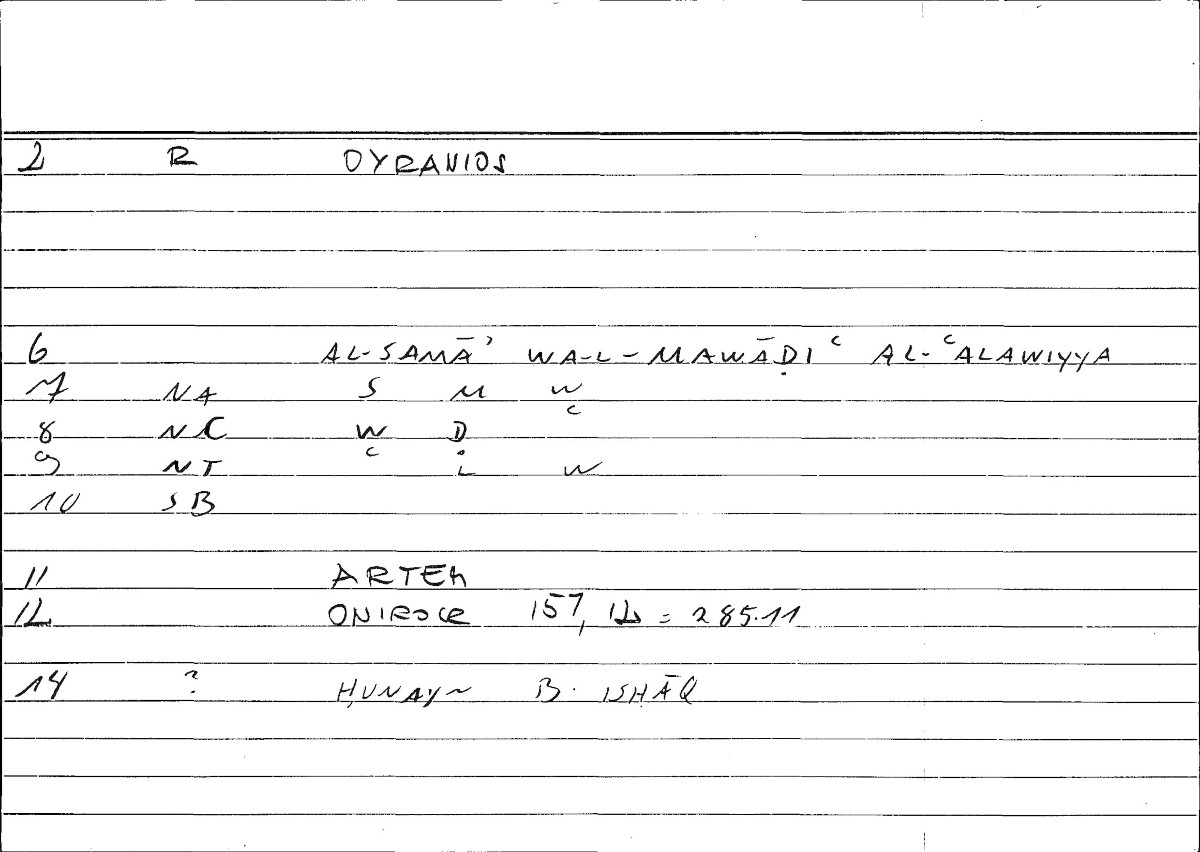 2 R OYRANIOS
6 AL-SAMĀʾ WA-L-MAWĀḌIʿ AL-ʿALAWIYYA
7 NA S M W
8 NC Wʿ Ḍ ʿ
9 NT ʿ L W
10 SB
11 ARTEM
12 ONIROCR 157, 12 = 285.11
14 ? ḤUNAYN B. ISḤĀQ